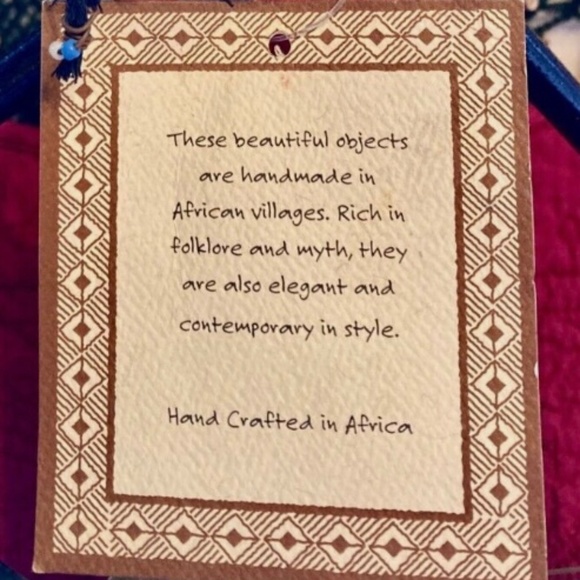 These beautiful objects
are handmade in
African villages. Rich in
folklore and myth, they
are also elegant and
contemporary in style.
Hand Crafted in Africa